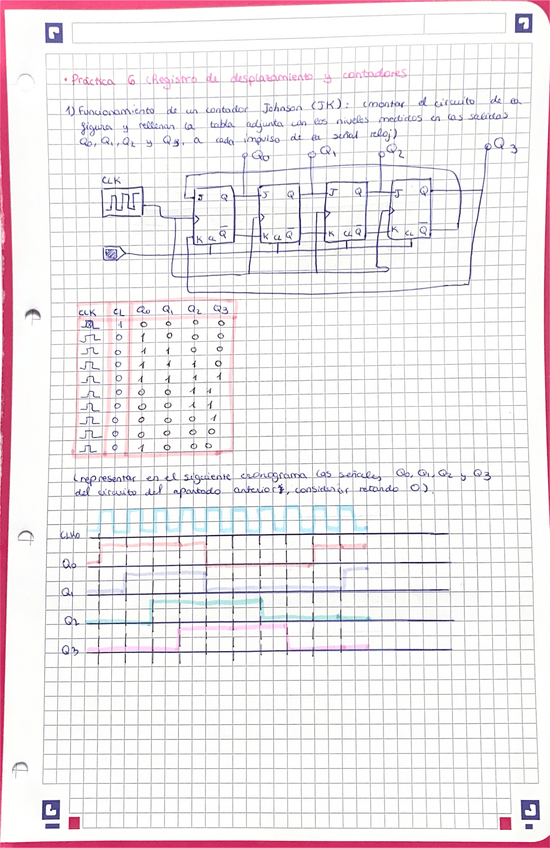 • Práctica 6 (Registro de desplazamiento y contadores
1) Funcionamiento de un contador Johnson (JK): (montar el circuito de la
figura y rellenar la tabla adjunta con los niveles medidos en las salidas
Q0, Q1, Q2 y Q3, a cada impulso de la señal reloj)
Q0 Q1 Q2 Q3
CLK
J Q J Q J Q J Q
K CL Q̅ K CL Q̅ K CL Q̅ K CL Q̅
CLK CL Q0 Q1 Q2 Q3
1 0 0 0 0
0 1 0 0 0
0 1 1 0 0
0 1 1 1 0
0 1 1 1 1
0 0 0 1 1
0 0 0 1 1
0 0 0 0 1
0 0 0 0 0
0 1 0 0 0
(representar en el siguiente cronograma las señales, Q0, Q1, Q2 y Q3
del circuito del apartado anterior, considerar retardo 0).
CLK0
Q0
Q1
Q2
Q3